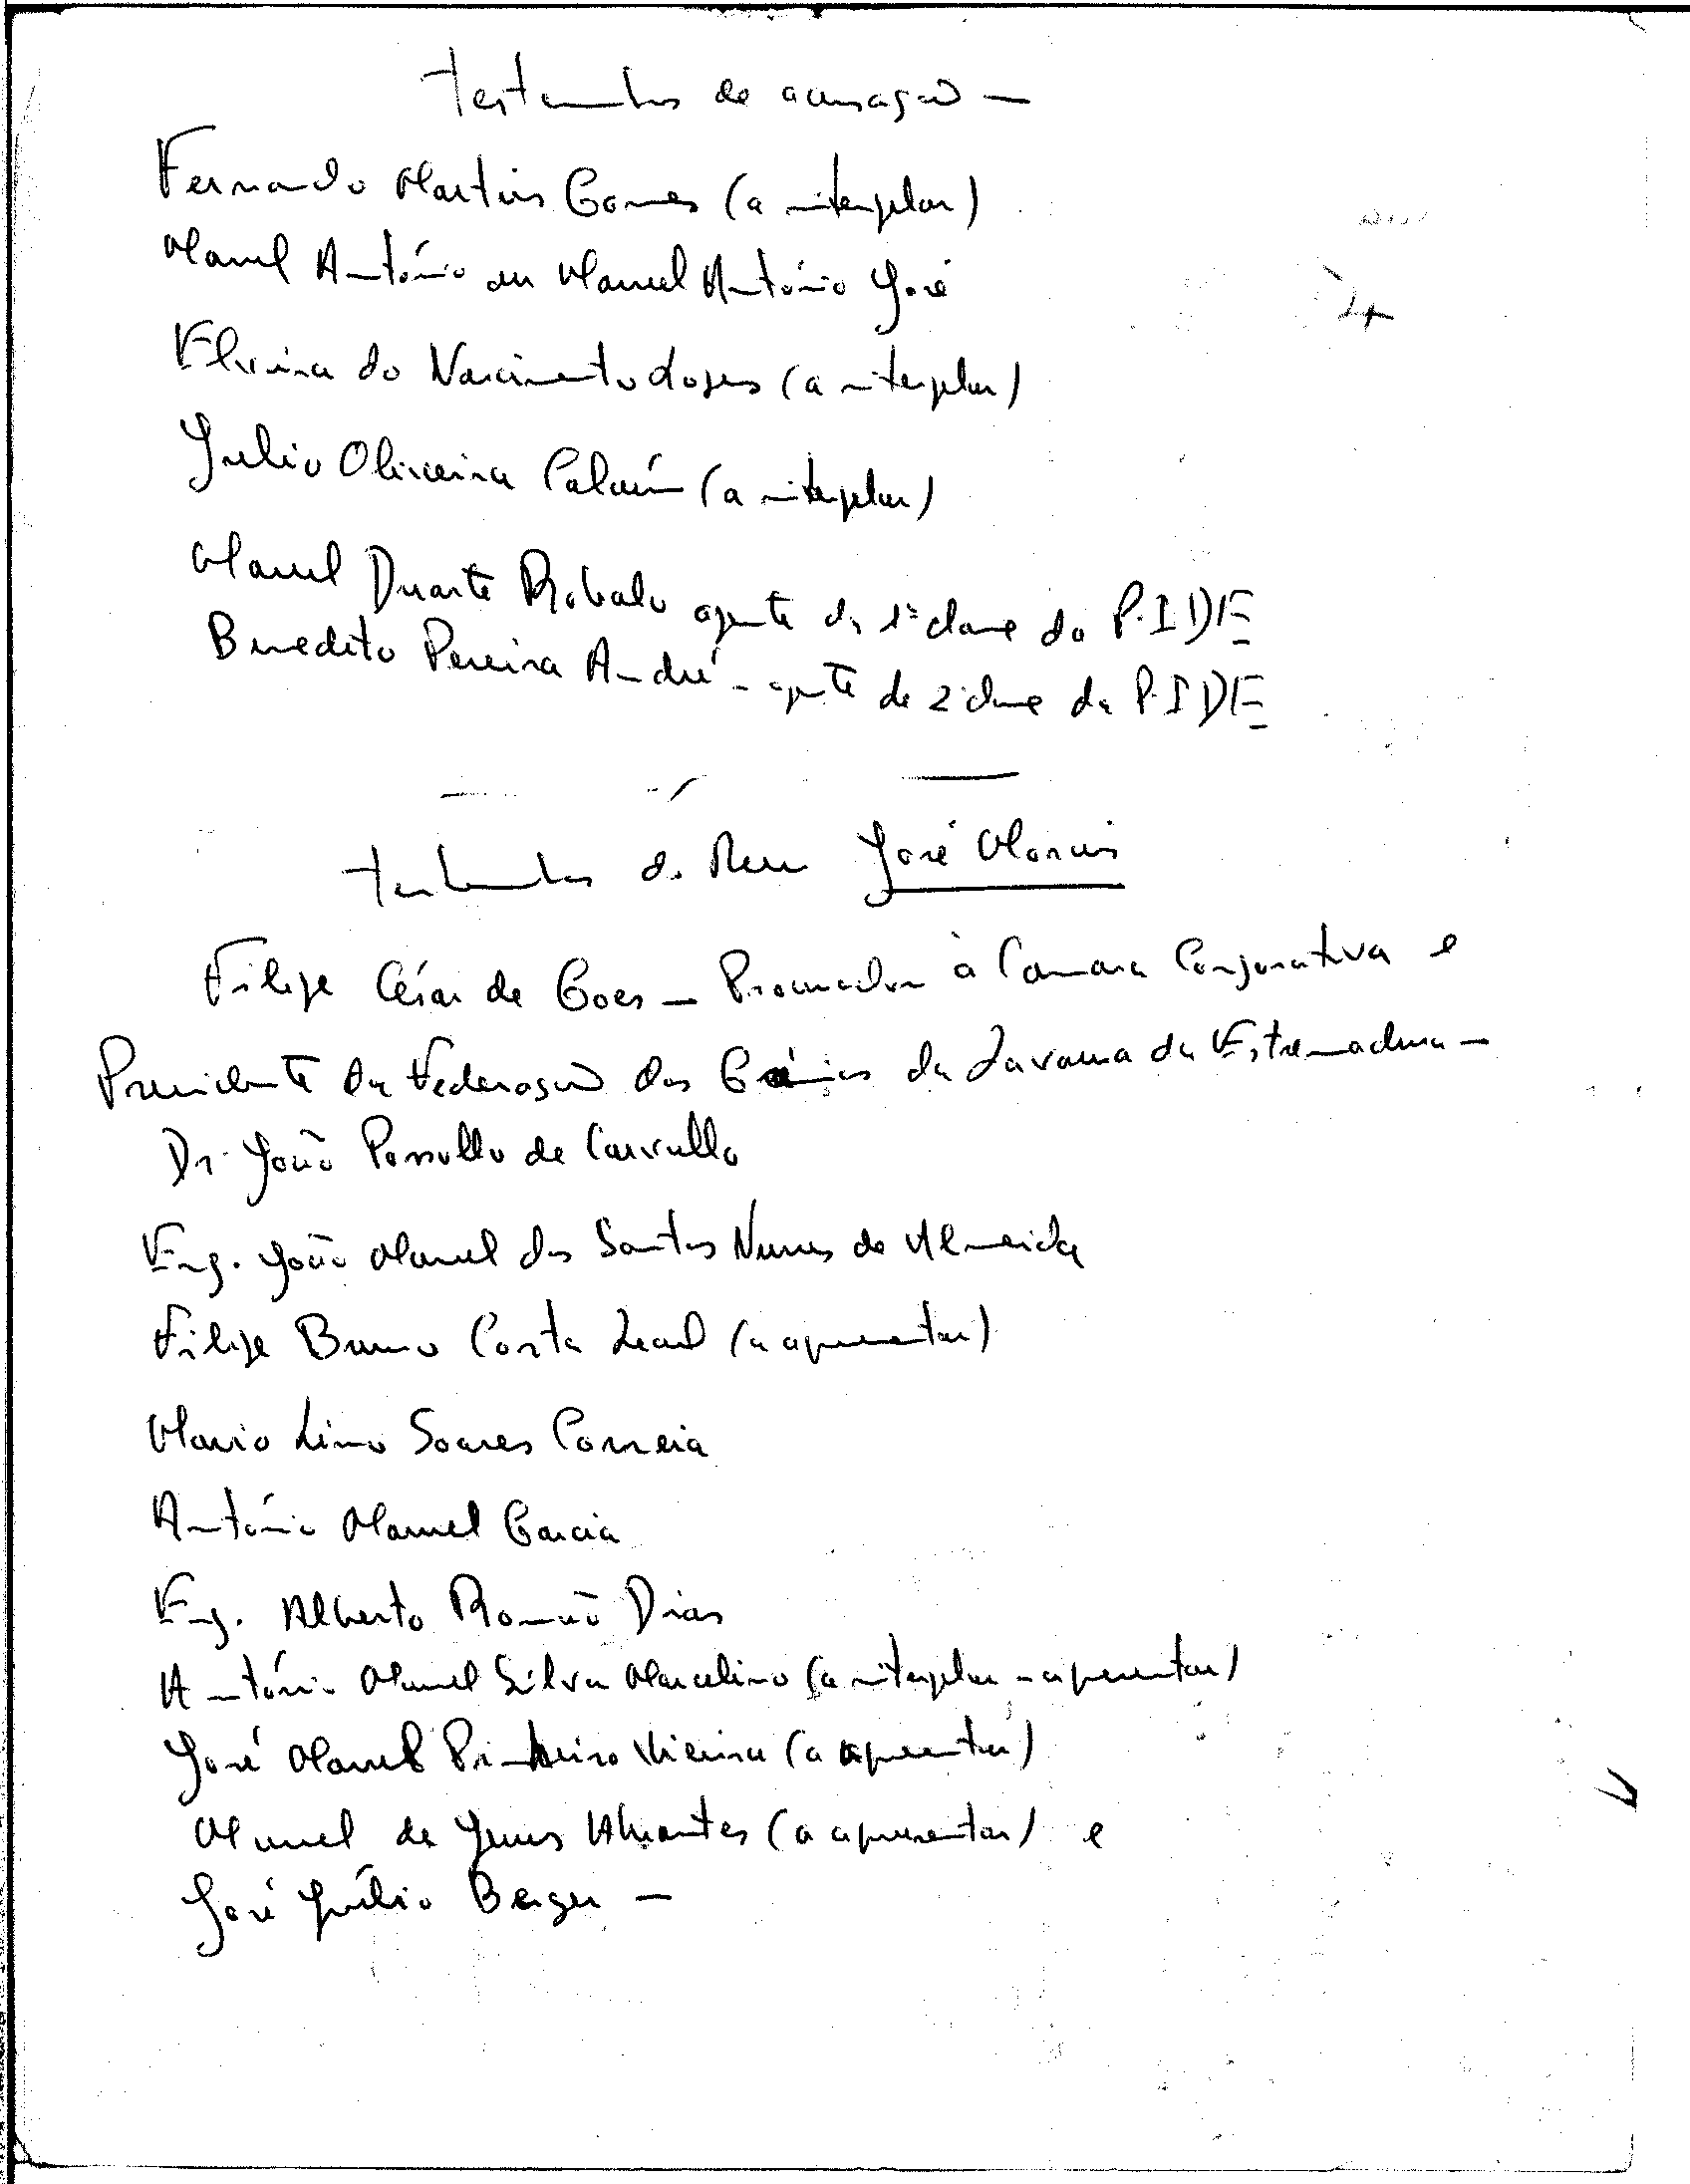 Testemunhas de acusação —
Fernando Martins Gomes (a interpelar)
Manuel António ou Manuel António José
Elvira do Nascimento Lopes (a interpelar)
Julio Oliveira (a interpelar)
Manuel Duarte Robalo agente de 1ª classe da P.I.D.E
Benedito Pereira André - agente de 2ª classe da P.I.D.E
Testemunhas do Reu José Marcos
Filipe César de Goes — Procurador à Camara Corporativa e
Presidente da Federação dos Grémios da Lavoura da Estremadura —
Dr. João Possollo de Carvalho
Eng. João Manuel dos Santos Nunes de Almeida
Filipe Bruno Costa Leal (a apresentar)
Mario Lino Soares Correia
António Manuel Garcia
Eng. Alberto Romão Dias
António Manuel Silva Marcelino (a interpelar - apresentar)
José Manuel Pinheiro Vieira (a apresentar)
Manuel de Jesus Abrantes (a apresentar) e
José Júlio Berger —